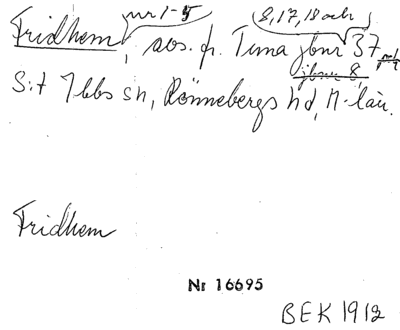 nr 1-5 8, 17, 18 och
Fridhem, avs. fr. Tuna jbnr 37
jbnr 8,
S:t Ibbs sn, Rönnebergs hd, M-län.
Fridhem
Nr 16695
BEK 1912